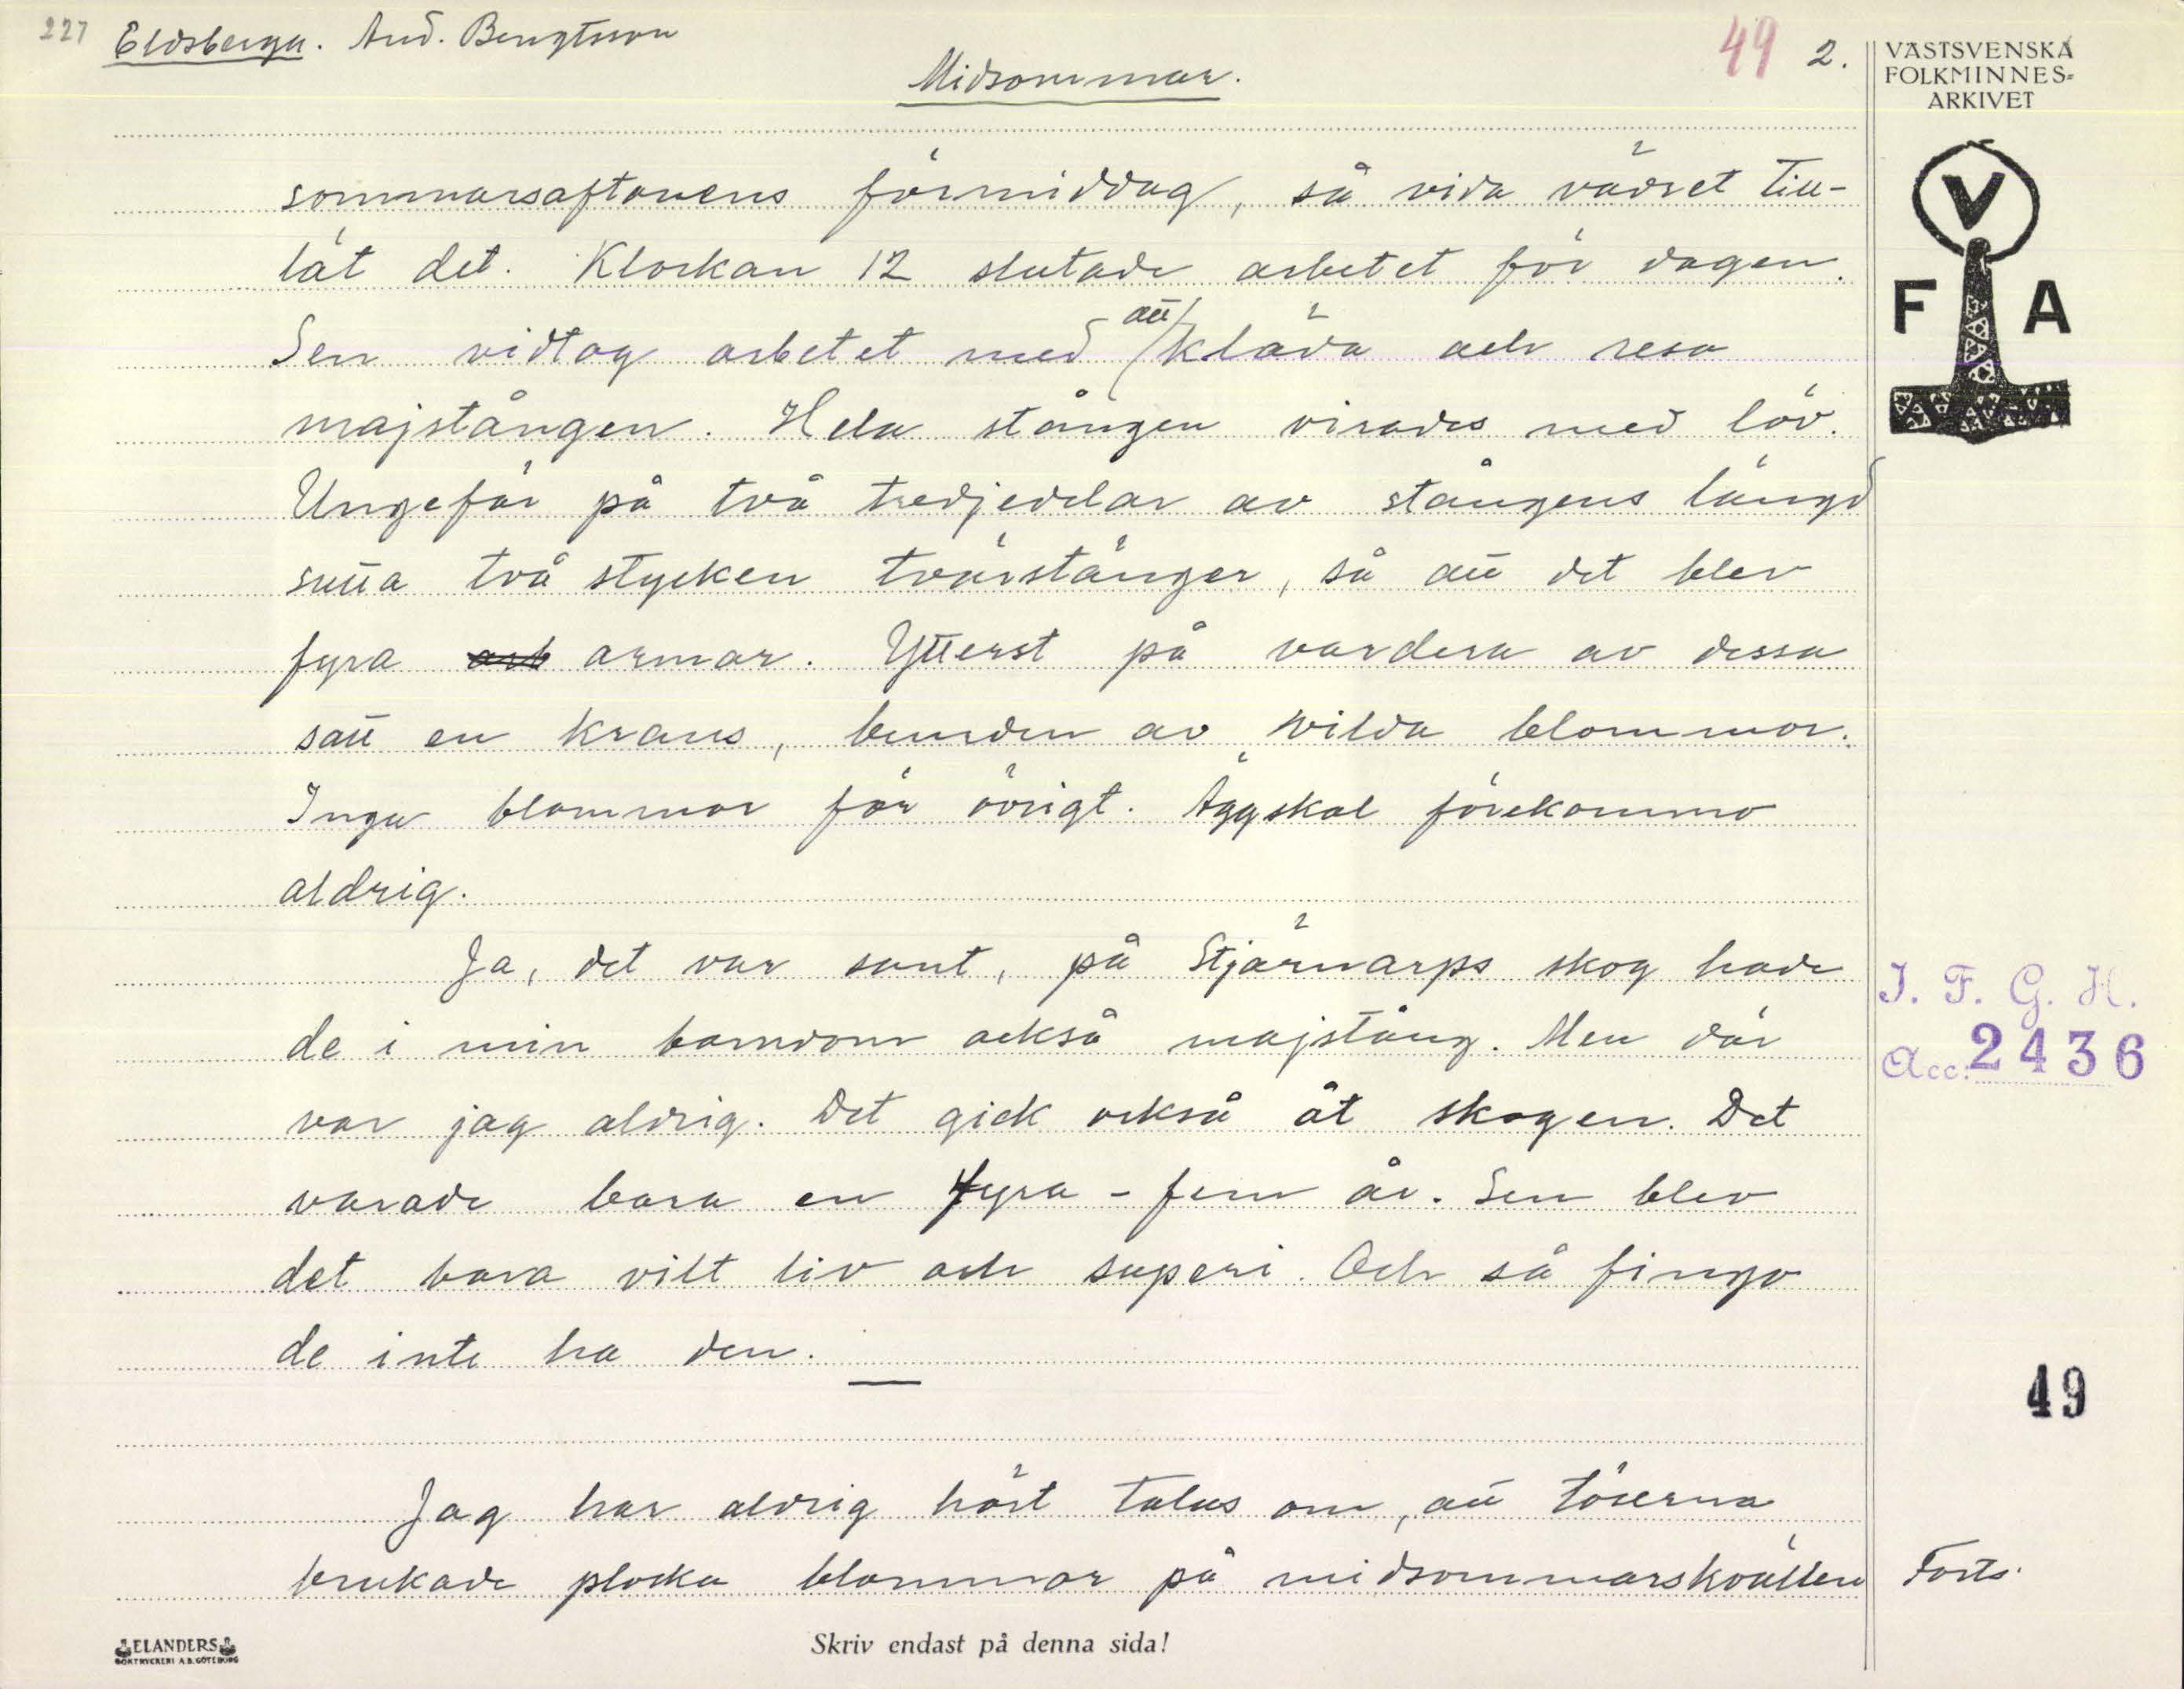 227 Eldsberga. And. Bengtsson
49 2.
Midsommar.
VÄSTSVENSKA
FOLKMINNES-
ARKIVET
V
F A
sommarsaftonens förmiddag, så vida vädret till-
lät det. Klockan 12 slutade arbetet för dagen.
Sen vidtog arbetet med att kläda och resa
majstången. Hela stången virades med löv.
Ungefär på två tredjedelar av stångens längd
sutta två stycken tvärstänger, så att det blev
fyra arb armar. Ytterst på vardera av dessa
satt en krans, bunden av vilda blommor.
Inga blommor för övrigt. Äggskal förekommo
aldrig.
Ja, det var sant, på Stjärnarps skog hade
de i min barndom också majstång. Men där
var jag aldrig. Det gick också åt skogen. Det
varade bara en fyra - fem år. Sen blev
det bara vilt liv och superi. Och så fingo
de inte ha den.
I. F. G. H.
Acc. 2436
49
Jag har aldrig hört talas om, att töserna
brukade plocka blommor på midsommarskvällen
Forts.
ELANDERS
BOKTRYCKERI A.B. GÖTEBORG
Skriv endast på denna sida!